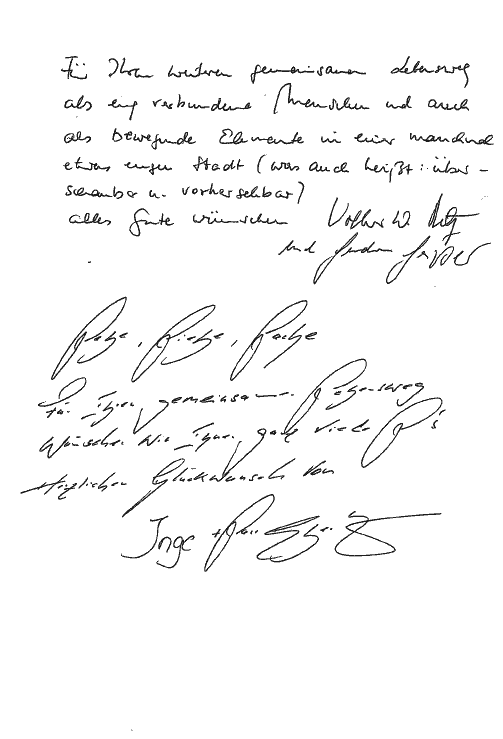 Für Ihren weiteren gemeinsamen Lebensweg
als eng verbundene Menschen und auch
als bewegende Elemente in einer manchmal
etwas engen Stadt (was auch heißt: über-
schaubar u. vorhersehbar)
alles Gute wünschen Volker W.
und
Liebe, Liebe, Liebe
Für Ihren gemeinsamen Lebensweg
wünschen wir Ihnen ganz viele L's
Herzlichen Glückwunsch von
Inge +